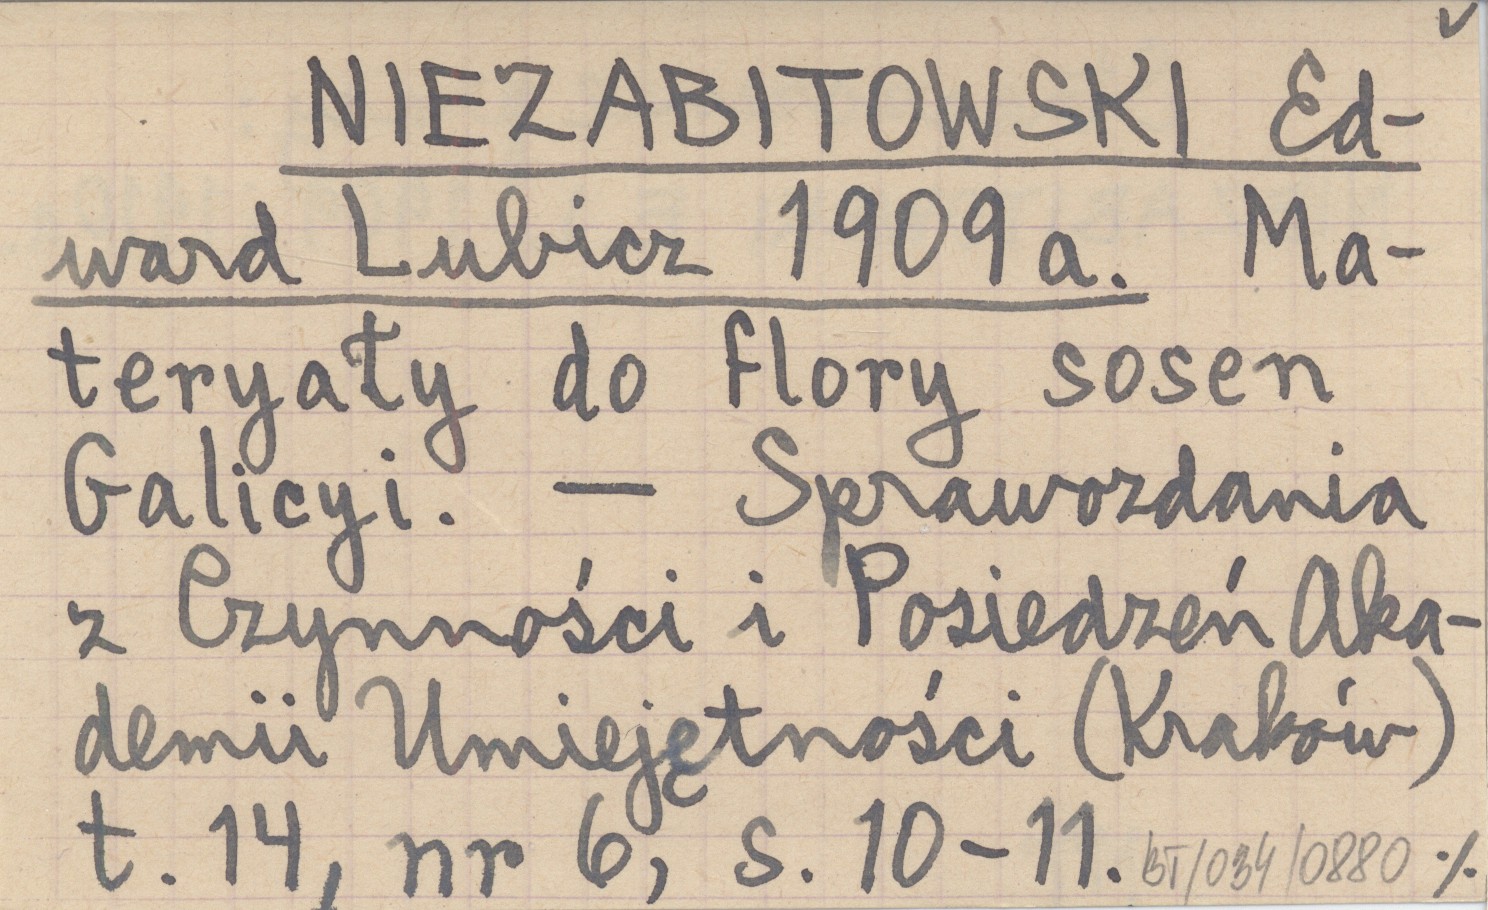 NIEZABITOWSKI Ed-
ward Lubicz 1909a. Ma-
teryały do flory sosen
Galicyi. — Sprawozdania
z Czynności i Posiedzeń Aka-
demii Umiejętności (Kraków)
t. 14, nr 6, s. 10-11. BT/034/0880 ./.